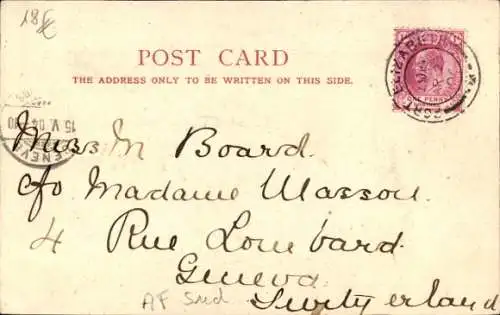 18£
POST CARD
THE ADDRESS ONLY TO BE WRITTEN ON THIS SIDE.
ELIZABETH
ONE PENNY
15.V.04-10
GENEV
Miss M Board.
c/o Madame Wasson
4 Rue Lombard
Geneva
AF Sud Switzerland